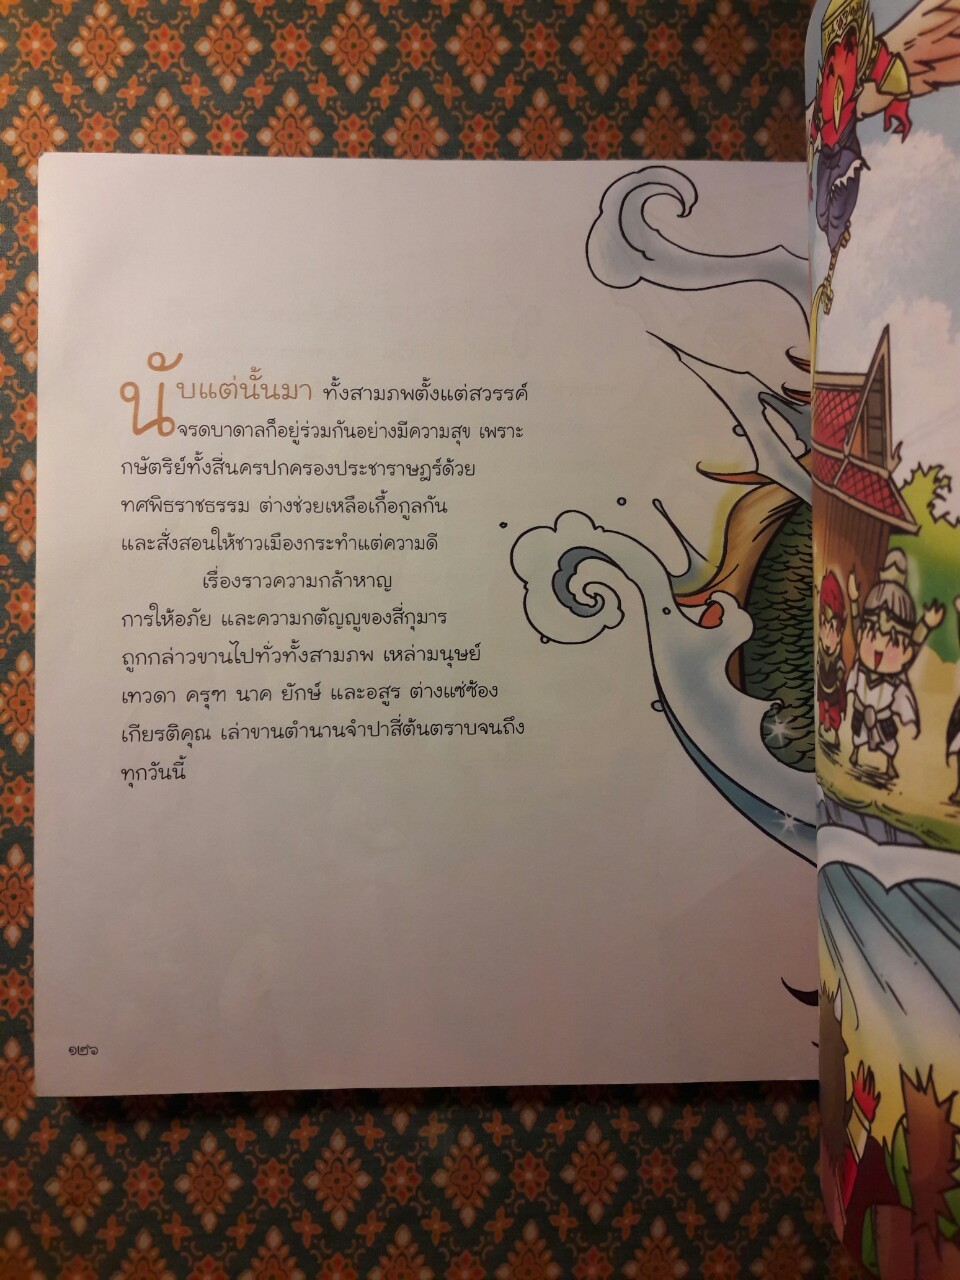 นับแต่นั้นมา ทั้งสามภพตั้งแต่สวรรค์
จรดบาดาลก็อยู่ร่วมกันอย่างมีความสุข เพราะ
กษัตริย์ทั้งสี่นครปกครองประชาราษฎร์ด้วย
ทศพิธราชธรรม ต่างช่วยเหลือเกื้อกูลกัน
และสั่งสอนให้ชาวเมืองกระทำแต่ความดี
เรื่องราวความกล้าหาญ
การให้อภัย และความกตัญญูของสี่กุมาร
ถูกกล่าวขานไปทั่วทั้งสามภพ เหล่ามนุษย์
เทวดา ครุฑ นาค ยักษ์ และอสูร ต่างแซ่ซ้อง
เกียรติคุณ เล่าขานตำนานจำปาสี่ต้นตราบจนถึง
ทุกวันนี้
๑๒๖